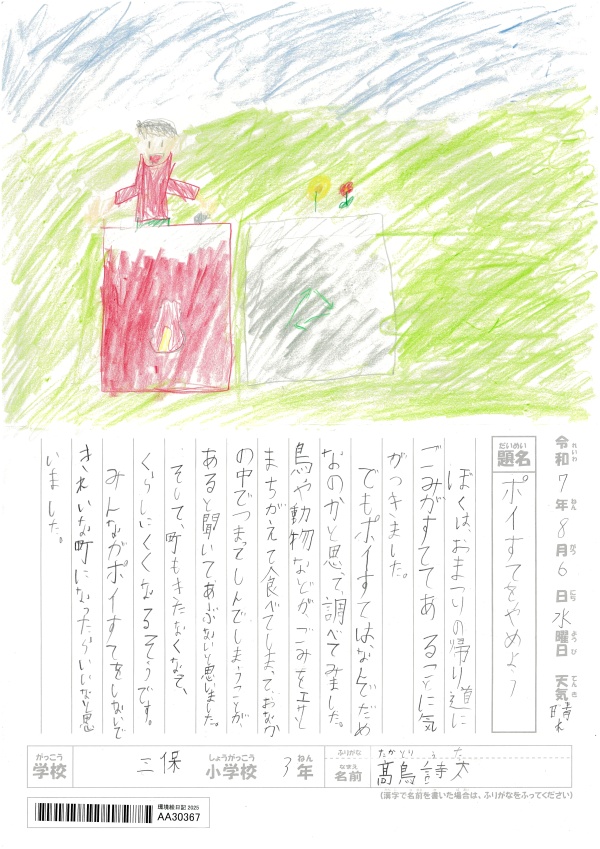 令和7年8月6日水曜日 天気晴れ
れいわ ねん がつ にち ようび てんき
だいめい
題名 ポイすてをやめよう
ぼくは、おまつりの帰り道に
ごみがすててあることに気
がつきました。
でもポイすては、なんでだめ
なのかと思って、調べてみました。
鳥や動物などが、ごみをエサと
まちがえて食べてしまって、おなか
の中でつまってしんでしまうことが
あると聞いてあぶないと思いました。
そして、町もきたなくなって、
くらしにくくなるそうです。
みんながポイすてをしないで
きれいな町になったらいいなと思
いました。
がっこう しょうがっこう ねん ふりがな たかとり うた
学校 三保 小学校 3年 なまえ 名前 髙鳥 詩太
(漢字で名前を書いた場合は、ふりがなをふってください)
環境絵日記 2025
AA30367